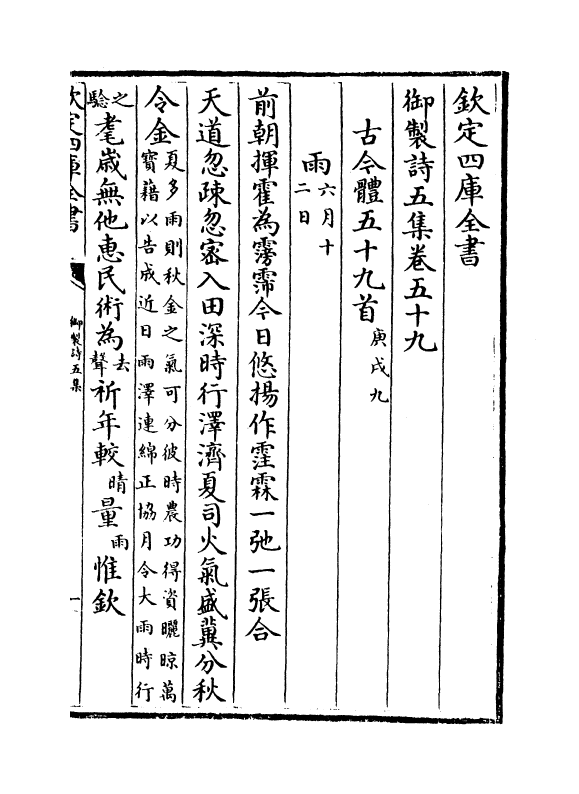 欽定四庫全書
御製詩五集卷五十九
古今體五十九首庚戌九
雨六月十二日
前朝揮霍為霶霈今日悠揚作霔霖一弛一張合
天道忽疎忽密入田深時行澤濟夏司火氣盛冀分秋
令金夏多雨則秋金之氣可分彼時農功得資曬晾萬寶藉以告成近日雨澤連綿正協月令大雨時行
之驗耄歲無他惠民術為去聲祈年較晴量雨惟欽
欽定四庫全書
御製詩五集
一